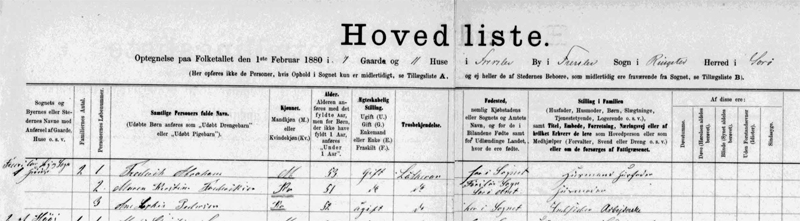 Hovedliste.
Optegnelse paa Folketallet den 1ste Februar 1880 i 9 Gaarde og 11 Huse i By Sogn i Ringsted Herred i Sorø
(Her opføres ikke de Personer, hvis Ophold i Sognet kun er midlertidigt, se Tillægsliste A. og ej heller de af Stedernes Beboere, som midlertidig ere fraværende fra Sognet, se Tillægsliste B).
Sognets og Byernes eller Stedernes Navne med Anførsel af Gaarde, Huse o. s. v.
Familiernes Antal.
Personernes Løbenummer.
Samtlige Personers fulde Navn.
(Udøbte Børn anføres som „Udøbt Drengebarn“ eller „Udøbt Pigebarn“).
Kjønnet.
Mandkjøn (M.) eller Kvindekjøn (Kv.)
Alder.
Alderen anføres med det fyldte Aar, men for Børn, der ikke have fyldt 1 Aar, anføres „Under 1 Aar“.
Ægteskabelig Stilling.
Ugift (U.) Gift (G.) Enkemand eller Enke (E.) Fraskilt (F.)
Trosbekjendelse.
Fødested,
nemlig Kjøbstadens eller Sognets og Amtets Navn, og for de i Bilandene Fødte samt for Udlændinge Landet, hvor de ere fødte.
Stilling i Familien
(Husfader, Husmoder, Børn, Slægtninge, Tjenestetyende, Logerende o. s. v.)
samt Titel, Embede, Forretning, Næringsvej eller af hvilket Erhverv de leve som Hovedperson eller som Medhjælper (Forvalter, Svend eller Dreng o. s. v.) eller om de forsørges af Fattigvæsenet.
Af disse ere:
Døvstumme.
Døve (Hørelsen aldeles berøvet).
Blinde (Synet aldeles berøvet).
Uden Forstandsevner (Idioter).
Sindssyge.
2 1 Frederik Abraham M 53 Gift Luthersk her i Sognet Husfader
2 Maren Kirstine Kv 51 do do Sogn Husmoder
3 Ane Kv ugift do her i Sognet